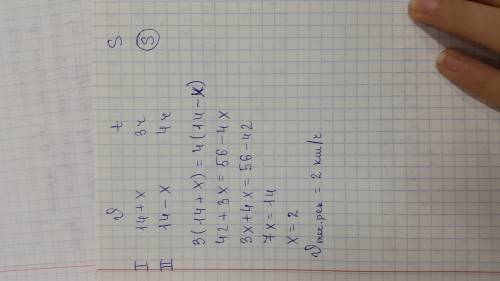 υ t S
I 14+x 3ч (S)
II 14-x 4ч
3(14+x)=4(14-x)
42+3x=56-4x
3x+4x=56-42
7x=14
x=2
υ теч.рек = 2 км/ч